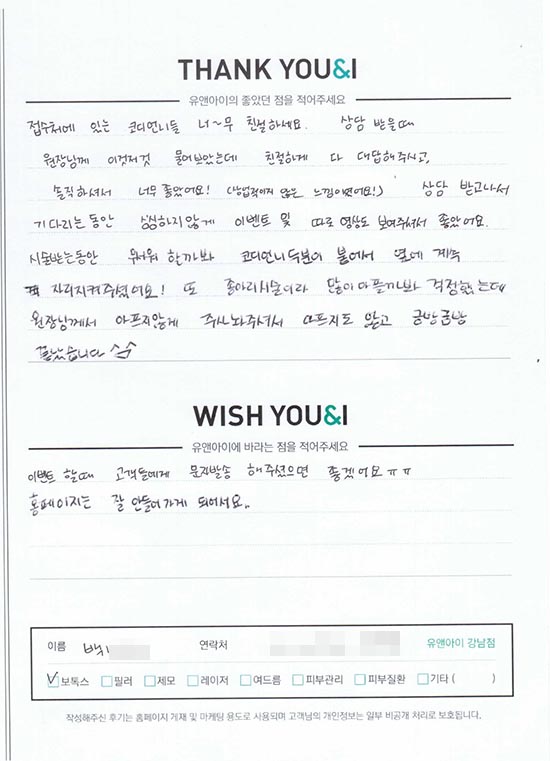 THANK YOU&I
유앤아이의 좋았던 점을 적어주세요
접수처에 있는 코디언니들 너~무 친절하세요. 상담 받을때
원장님께 이것저것 물어보았는데 친절하게 다 대답해주시고,
솔직하셔서 너무 좋았어요! (상업적이지 않은 느낌이였어요!) 상담 받고나서
기다리는동안 심심하지않게 이벤트 및 따로 영상도 보여주셔서 좋았어요.
시술받는동안 무서워 할까봐 코디언니두분이 붙어서 옆에 계속
자리지켜주셨어요! 또 종아리시술이라 많이아플까봐 걱정했는데
원장님께서 아프지않게 주사놔주셔서 아프지도 않고 금방금방
끝났습니다 ^^
WISH YOU&I
유앤아이에 바라는 점을 적어주세요
이벤트 할때 고객들에게 문자발송 해주셨으면 좋겠어요ㅠㅠ
홈페이지는 잘 안들어가게 되어서요..
이름 백 연락처 유앤아이 강남점
보톡스 필러 제모 레이저 여드름 피부관리 피부질환 기타 ( )
작성해주신 후기는 홈페이지 게재 및 마케팅 용도로 사용되며 고객님의 개인정보는 일부 비공개 처리로 보호됩니다.